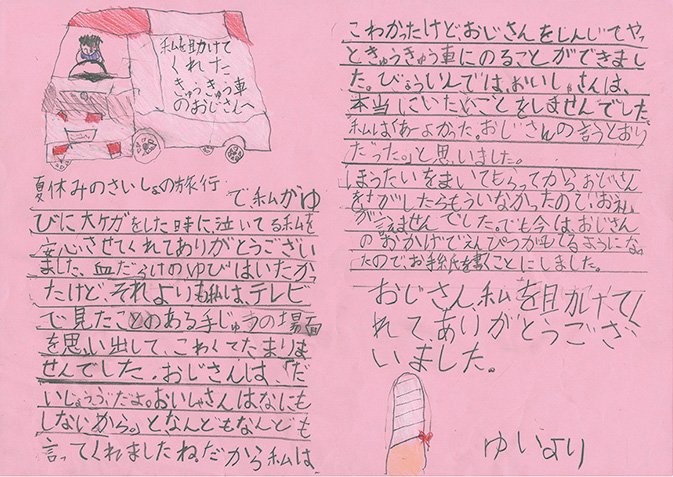 私を助けて
くれた
きゅうきゅう車
のおじさんへ
夏休みのさいしょの旅行で、私がゆ
びに大ケガをした時に、泣いてる私を
安心させてくれてありがとうござい
ました。血だらけのゆびはいたか
ったけど、それよりも私は、テレビ
で見たことのある手じゅつの場面
を思い出して、こわくてたまりま
せんでした。おじさんは、「だ
いじょうぶだよ。おいしゃさんはなにも
しないから。」となんどもなんども
言ってくれましたね。だから私は、
こわかったけど、おじさんをしんじてやっ
ときゅうきゅう車にのることができまし
た。びょういんでは、おいしゃさんは、
本当にいたいことをしませんでした。
私は「あーよかった。おじさんの言うとおり
だった。」と思いました。
ほうたいをまいてもらってから、おじさん
をさがしたらもういなかったので、お礼
が言えませんでした。でも今は、おじさん
のおかげでえんぴつがもてるようになっ
たのでお手紙を書くことにしました。
おじさん、私を助けてく
れて、ありがとうござ
いました。
ゆいより